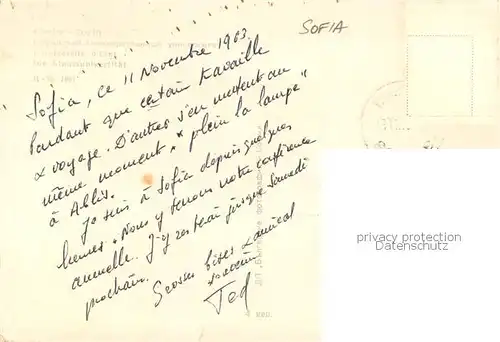 SOFIA
Sofia, ce 11 Novembre 1963.
Pendant que certain travaille
& voyage. D'autres s'en mettent au
même moment "plein la lampe"
à Ablis.
Je suis à Sofia depuis quelques
heures. Nous y tenons notre conférence
annuelle. J'y resterai jusque Samedi
prochain.
Grosses bises & amical
Ted
privacy protection
Datenschutz